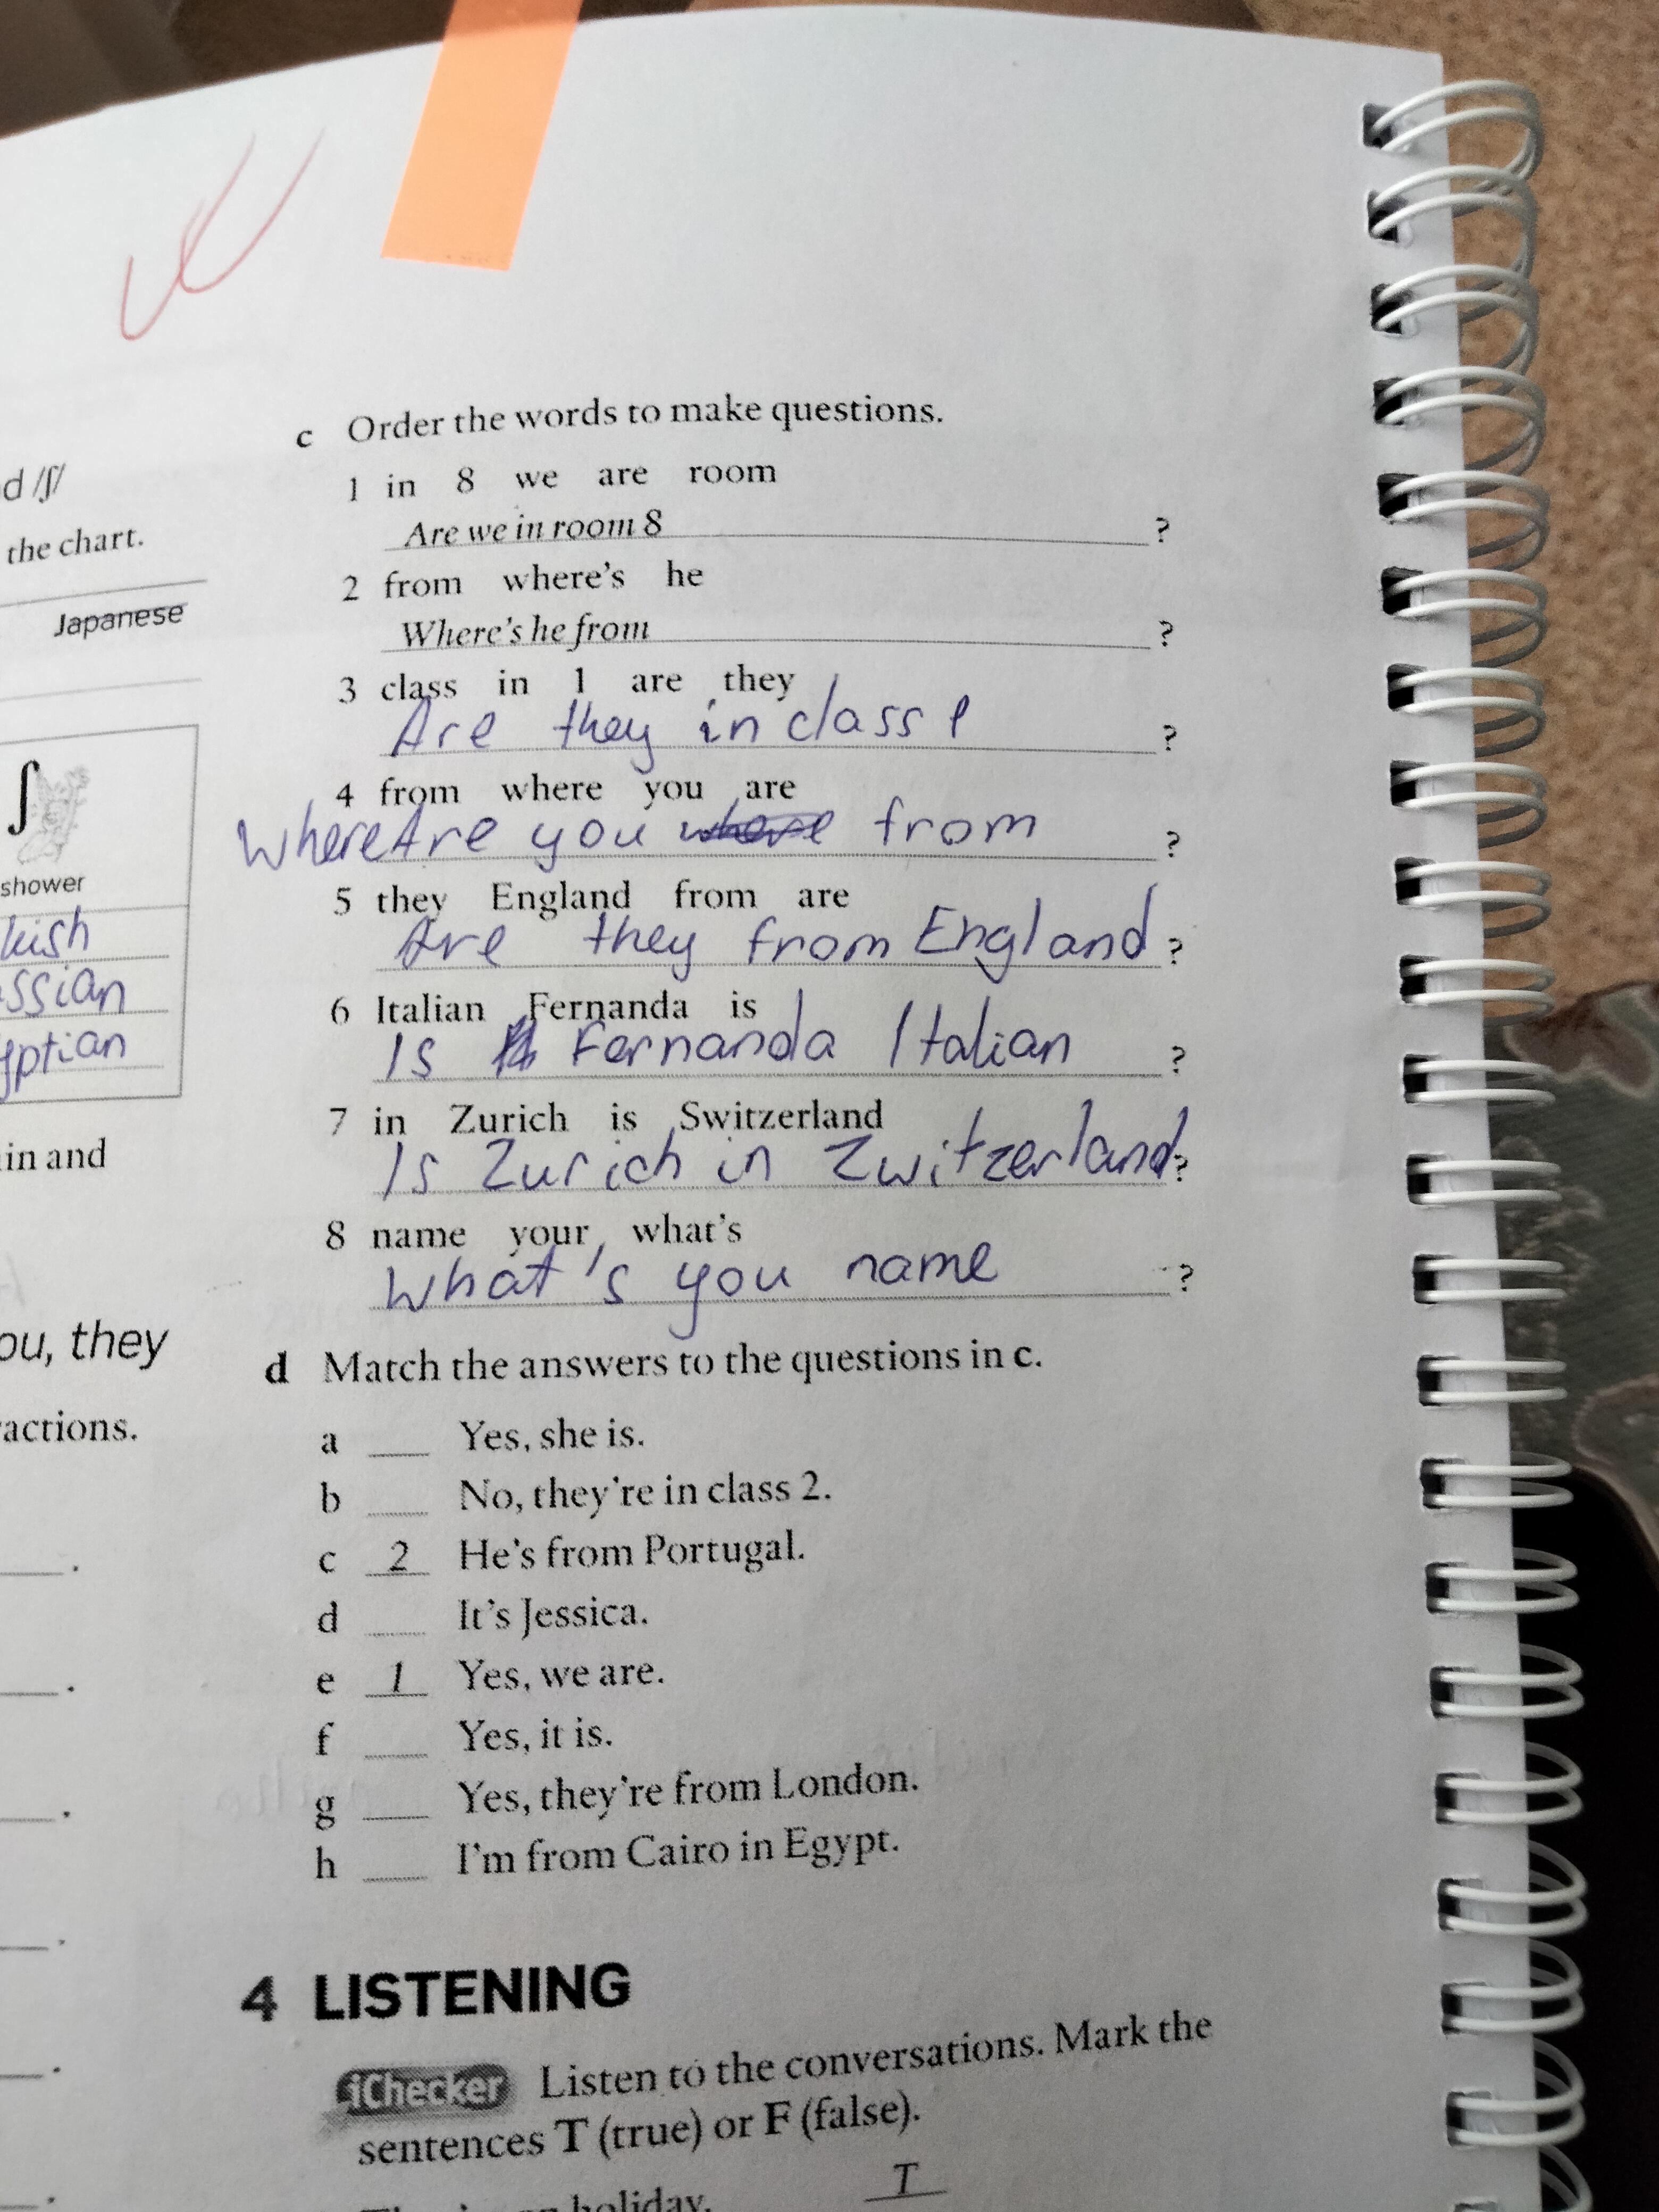 c Order the words to make questions.
1 in 8 we are room
Are we in room 8 ?
2 from where's he
Where's he from ?
3 class in 1 are they
Are they in class 1 ?
4 from where you are
Where Are you where from ?
5 they England from are
Are they from England ?
6 Italian Fernanda is
Is Fernanda Italian ?
7 in Zurich is Switzerland
Is Zurich in Zwitzerland ?
8 name your what's
What's you name ?
d Match the answers to the questions in c.
a Yes, she is.
b No, they're in class 2.
c 2 He's from Portugal.
d It's Jessica.
e 1 Yes, we are.
f Yes, it is.
g Yes, they're from London.
h I'm from Cairo in Egypt.
4 LISTENING
iChecker Listen to the conversations. Mark the
sentences T (true) or F (false).
holiday. T
d /ʃ/
the chart.
Japanese
ʃ
shower
kish
ssian
yptian
in and
ou, they
actions.